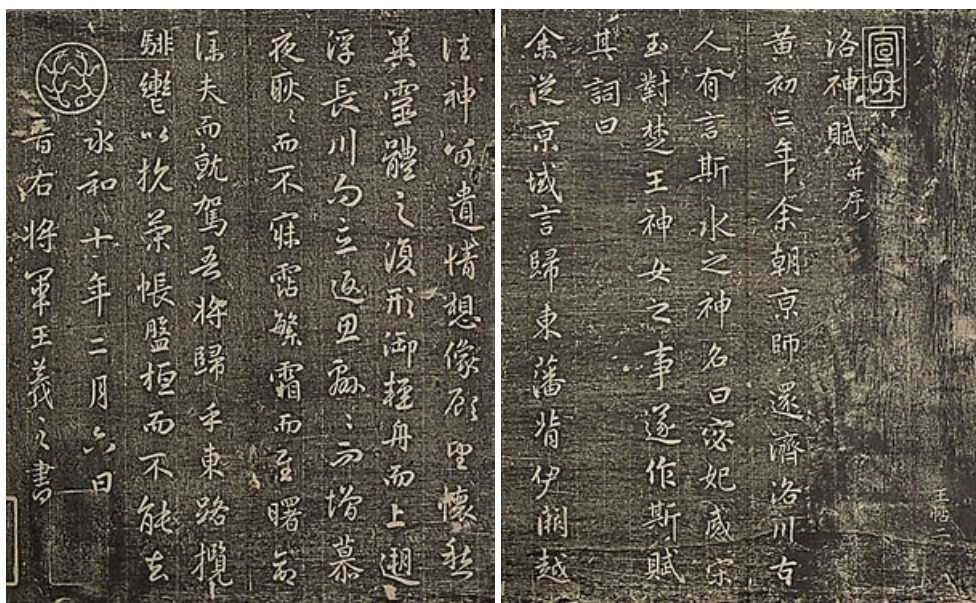 王帖二
宣和
洛神賦并序
黄初三年余朝亰師還濟洛川古
人有言斯水之神名曰宓妃感宋
玉對楚王神女之事遂作斯賦
其詞曰
余從亰域言歸東藩背伊闕越
往神留遺情想像顧望懷愁
冀靈體之復形御輕舟而上遡
浮長川而忘返思緜〻而增慕
夜耿〻而不寐霑繁霜而至曙命
僕夫而就駕吾將歸乎東路攬
騑轡以抗策悵盤桓而不能去
永和十年二月六日
晋右将軍王羲之書